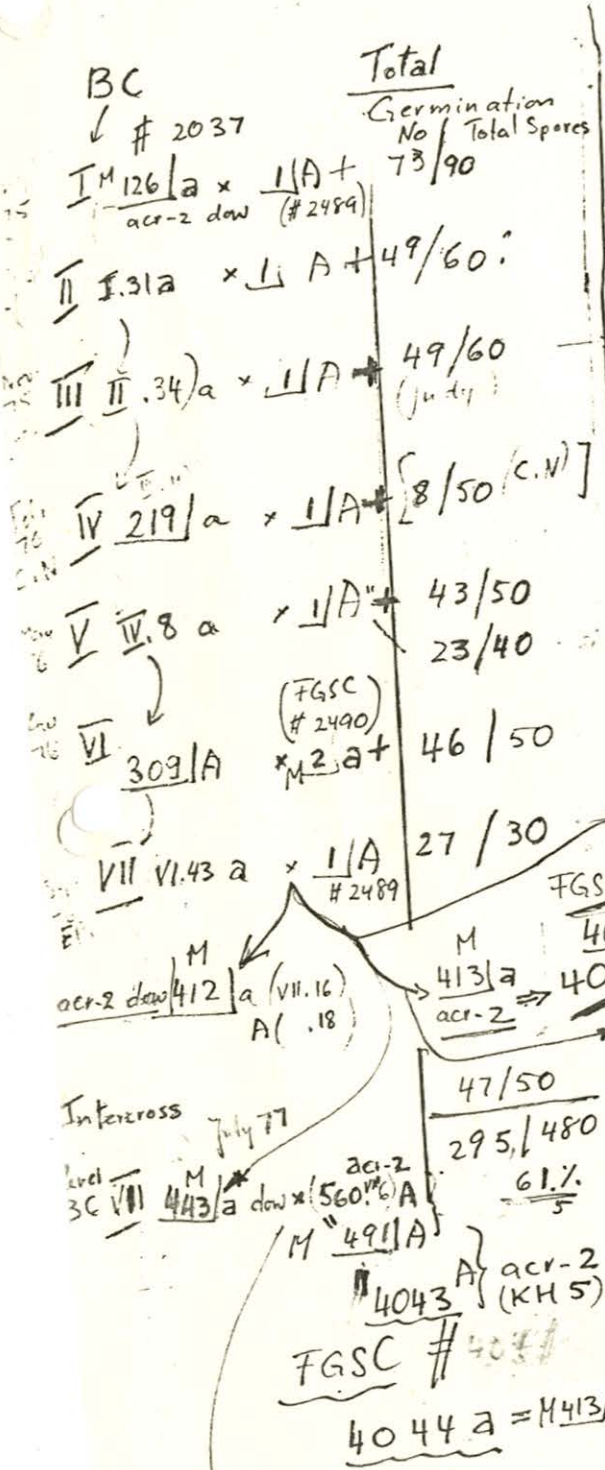 BC
# 2037
Total
Germination
No / Total Spores
I M 126 a × 1 A + 73/90
acr-2 dow (# 2489)
II I.31a × 1 A + 49/60
III II.34) a × 1 A + 49/60
(judy)
IV 219 a × 1 A + [8/50 (C.N)]
C.N
V IV.8 a × 1 A + 43/50
23/40
(FGSC
# 2490)
VI 309 A × M 2 a + 46 / 50
VII VI.43 a × 1 A 27 / 30
# 2489
FGS
acr-2 dow M 412 a (VII.16)
A( .18)
M
413 a ⇒ 40
acr-2
47/50
Intercross
July 77
295/480
61.%
5
3C VIII M 443 a dow × (560. 6) A
acr-2
M " 491 A
" 4043 A } acr-2
(KH 5)
FGSC #
4044 a = M413